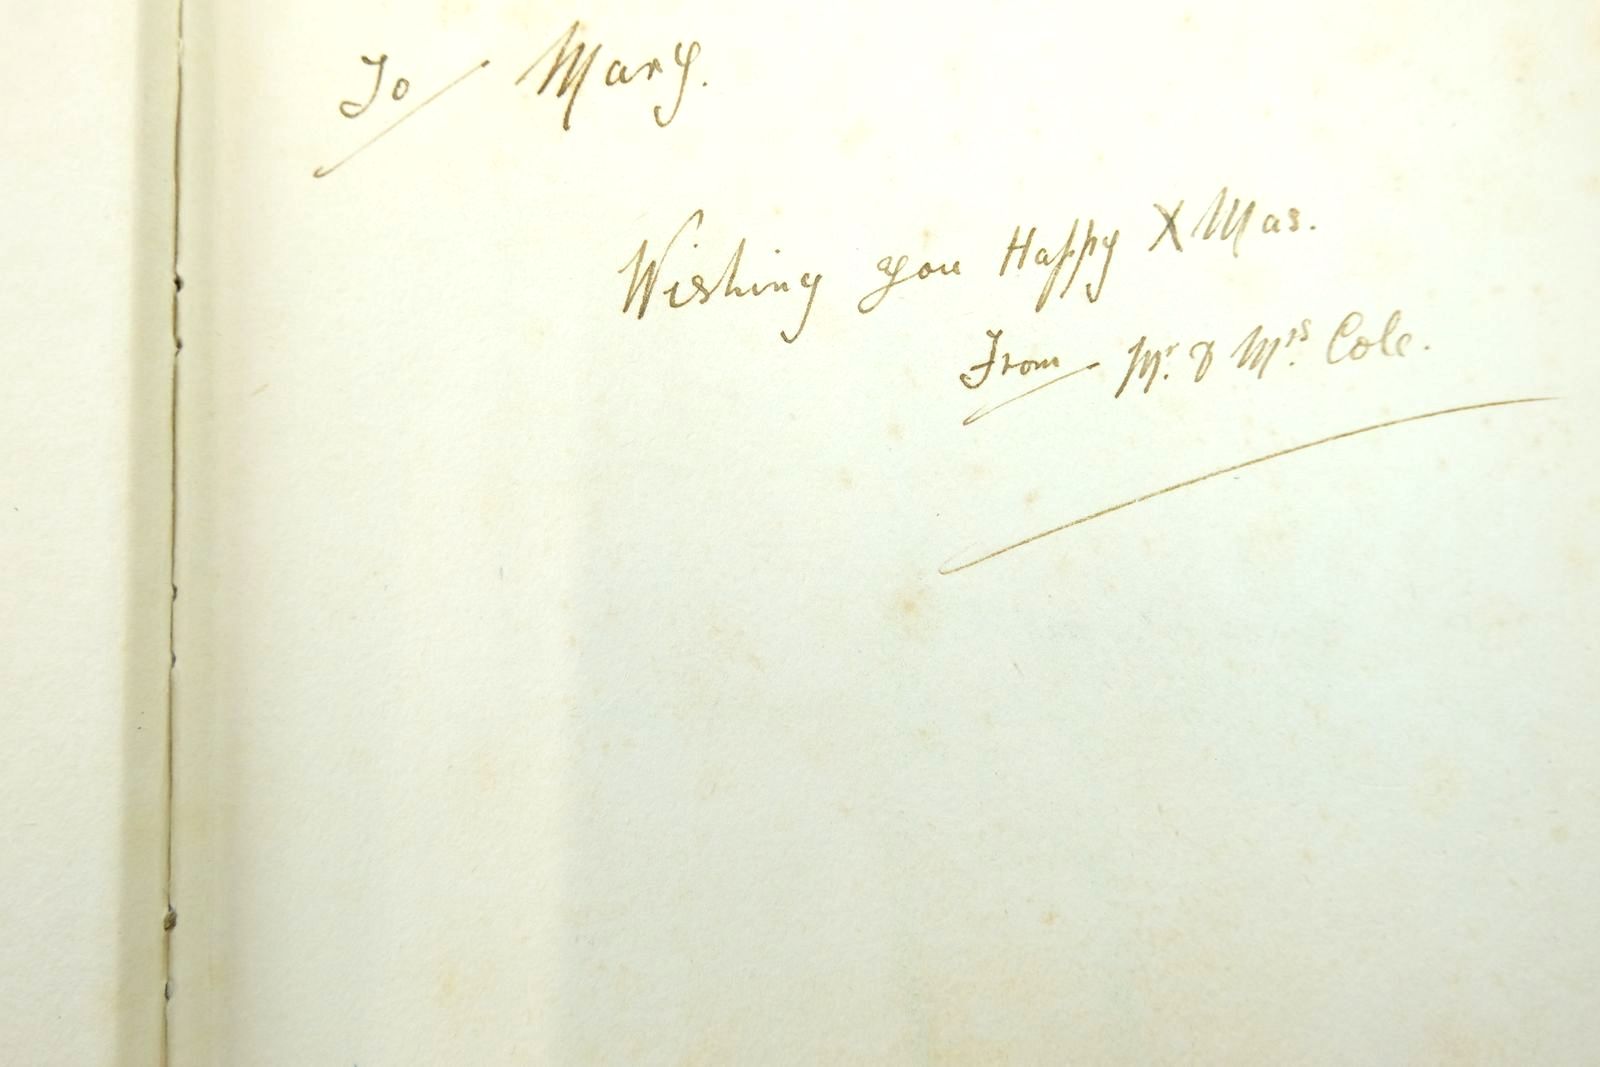 To Mary.
Wishing you Happy XMas.
From Mr. & Mrs. Cole.